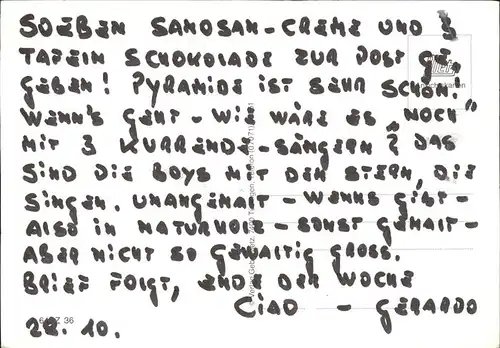 SOEBEN SANOSAN-CREME UND 3
TAFELN SCHOKOLADE ZUR POST GE,
GEBEN! PYRAMIDE IST SEHR SCHÖN!
WENN'S GEHT - WIE WÄRE ES "NOCH"
MIT 3 KURRENDE-SÄNGERN? DAS
SIND DIE BOYS MIT DEM STERN, DIE
SINGEN. UNANGEMALT - WENNS GIBT -
ALSO IN NATURHOLZ - SONST GEMALT -
ABER NICHT SO GEWALTIG GROSS.
BRIEF FOLGT, ENDE DER WOCHE
CIAO - GERARDO
28. 10.
Z 36